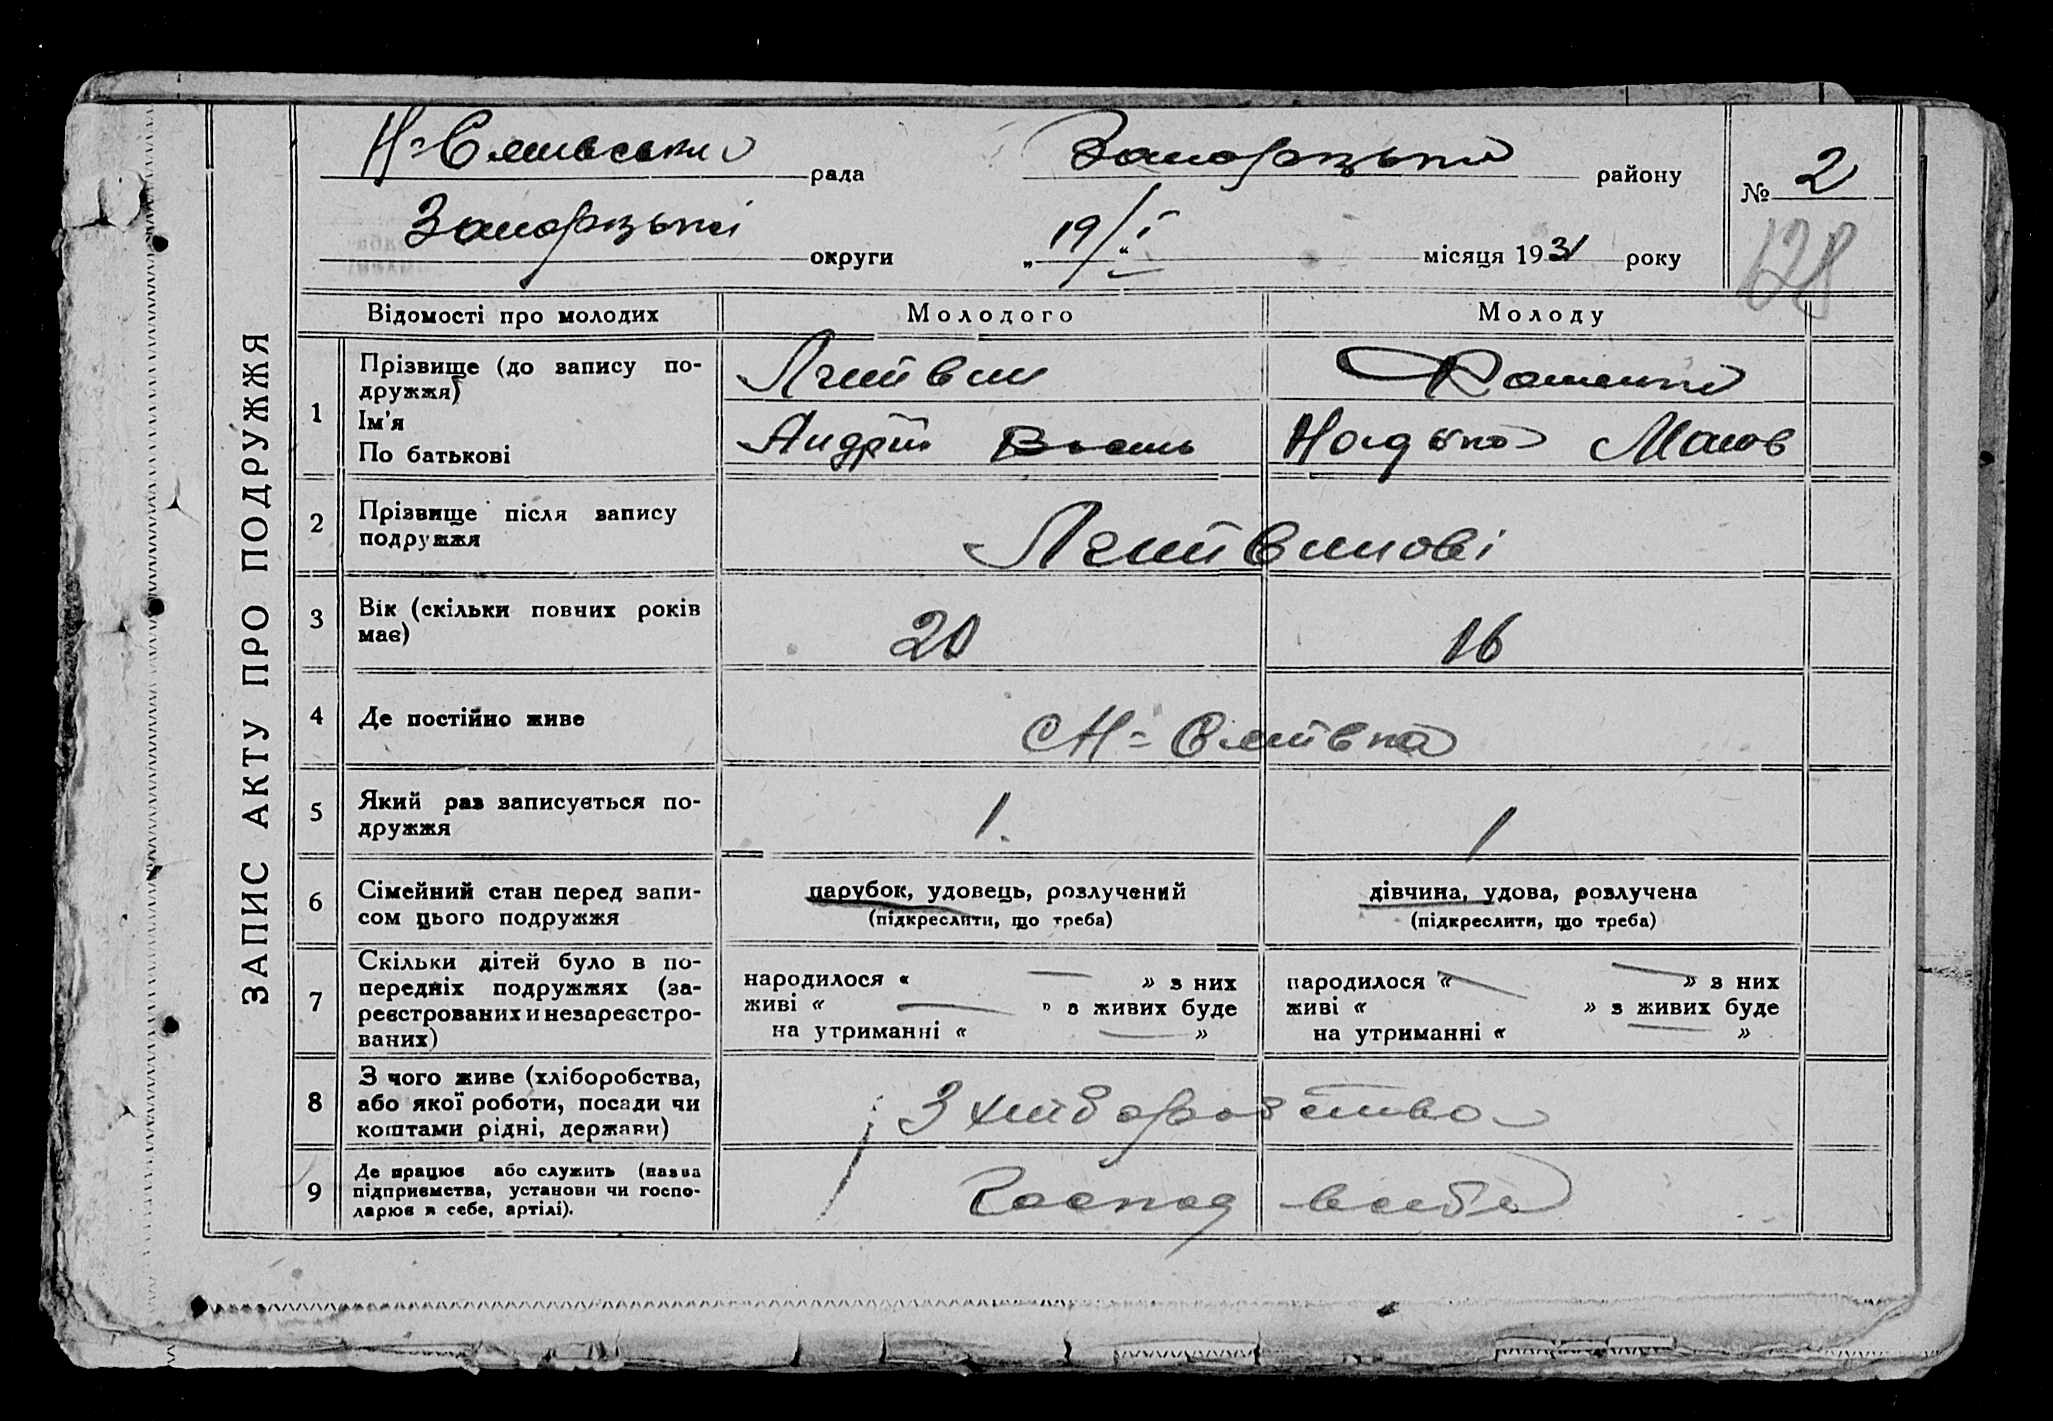 ЗАПИС АКТУ ПРО ПОДРУЖЖЯ
рада
району
№ 2
128
округи
„19/I“ місяця 1931 року
Відомості про молодих
Молодого
Молоду
1
Прізвище (до запису по-
дружжя)
Ім'я
По батькові
Литвин
Андрій Василь
2
Прізвище після запису
подружжя
Литвинові
3
Вік (скільки повних років
має)
20
16
4
Де постійно живе
5
Який раз записується по-
дружжя
1.
1
6
Сімейний стан перед запи-
сом цього подружжя
парубок, удовець, розлучений
(підкреслити, що треба)
дівчина, удова, розлучена
(підкреслити, що треба)
7
Скільки дітей було в по-
передніх подружжях (за-
реєстрованих и незареєстро-
ваних)
народилося « — » з них
живі « — » з живих буде
на утриманні « — »
народилося « — » з них
живі « » з живих буде
на утриманні « — »
8
З чого живе (хліборобства,
або якої роботи, посади чи
коштами рідні, держави)
З хліборобства
9
Де працює або служить (назва
підприємства, установи чи госпо-
дарює в себе, артілі).
Господ в себе